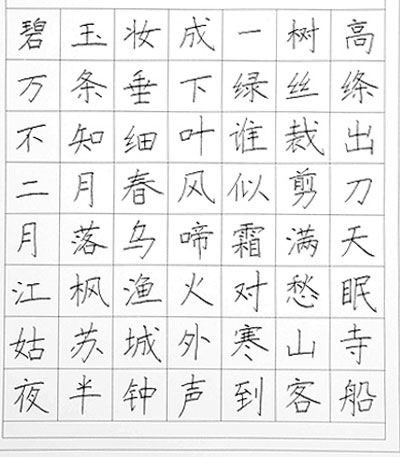 碧玉妆成一树高
万条垂下绿丝绦
不知细叶谁裁出
二月春风似剪刀
月落乌啼霜满天
江枫渔火对愁眠
姑苏城外寒山寺
夜半钟声到客船